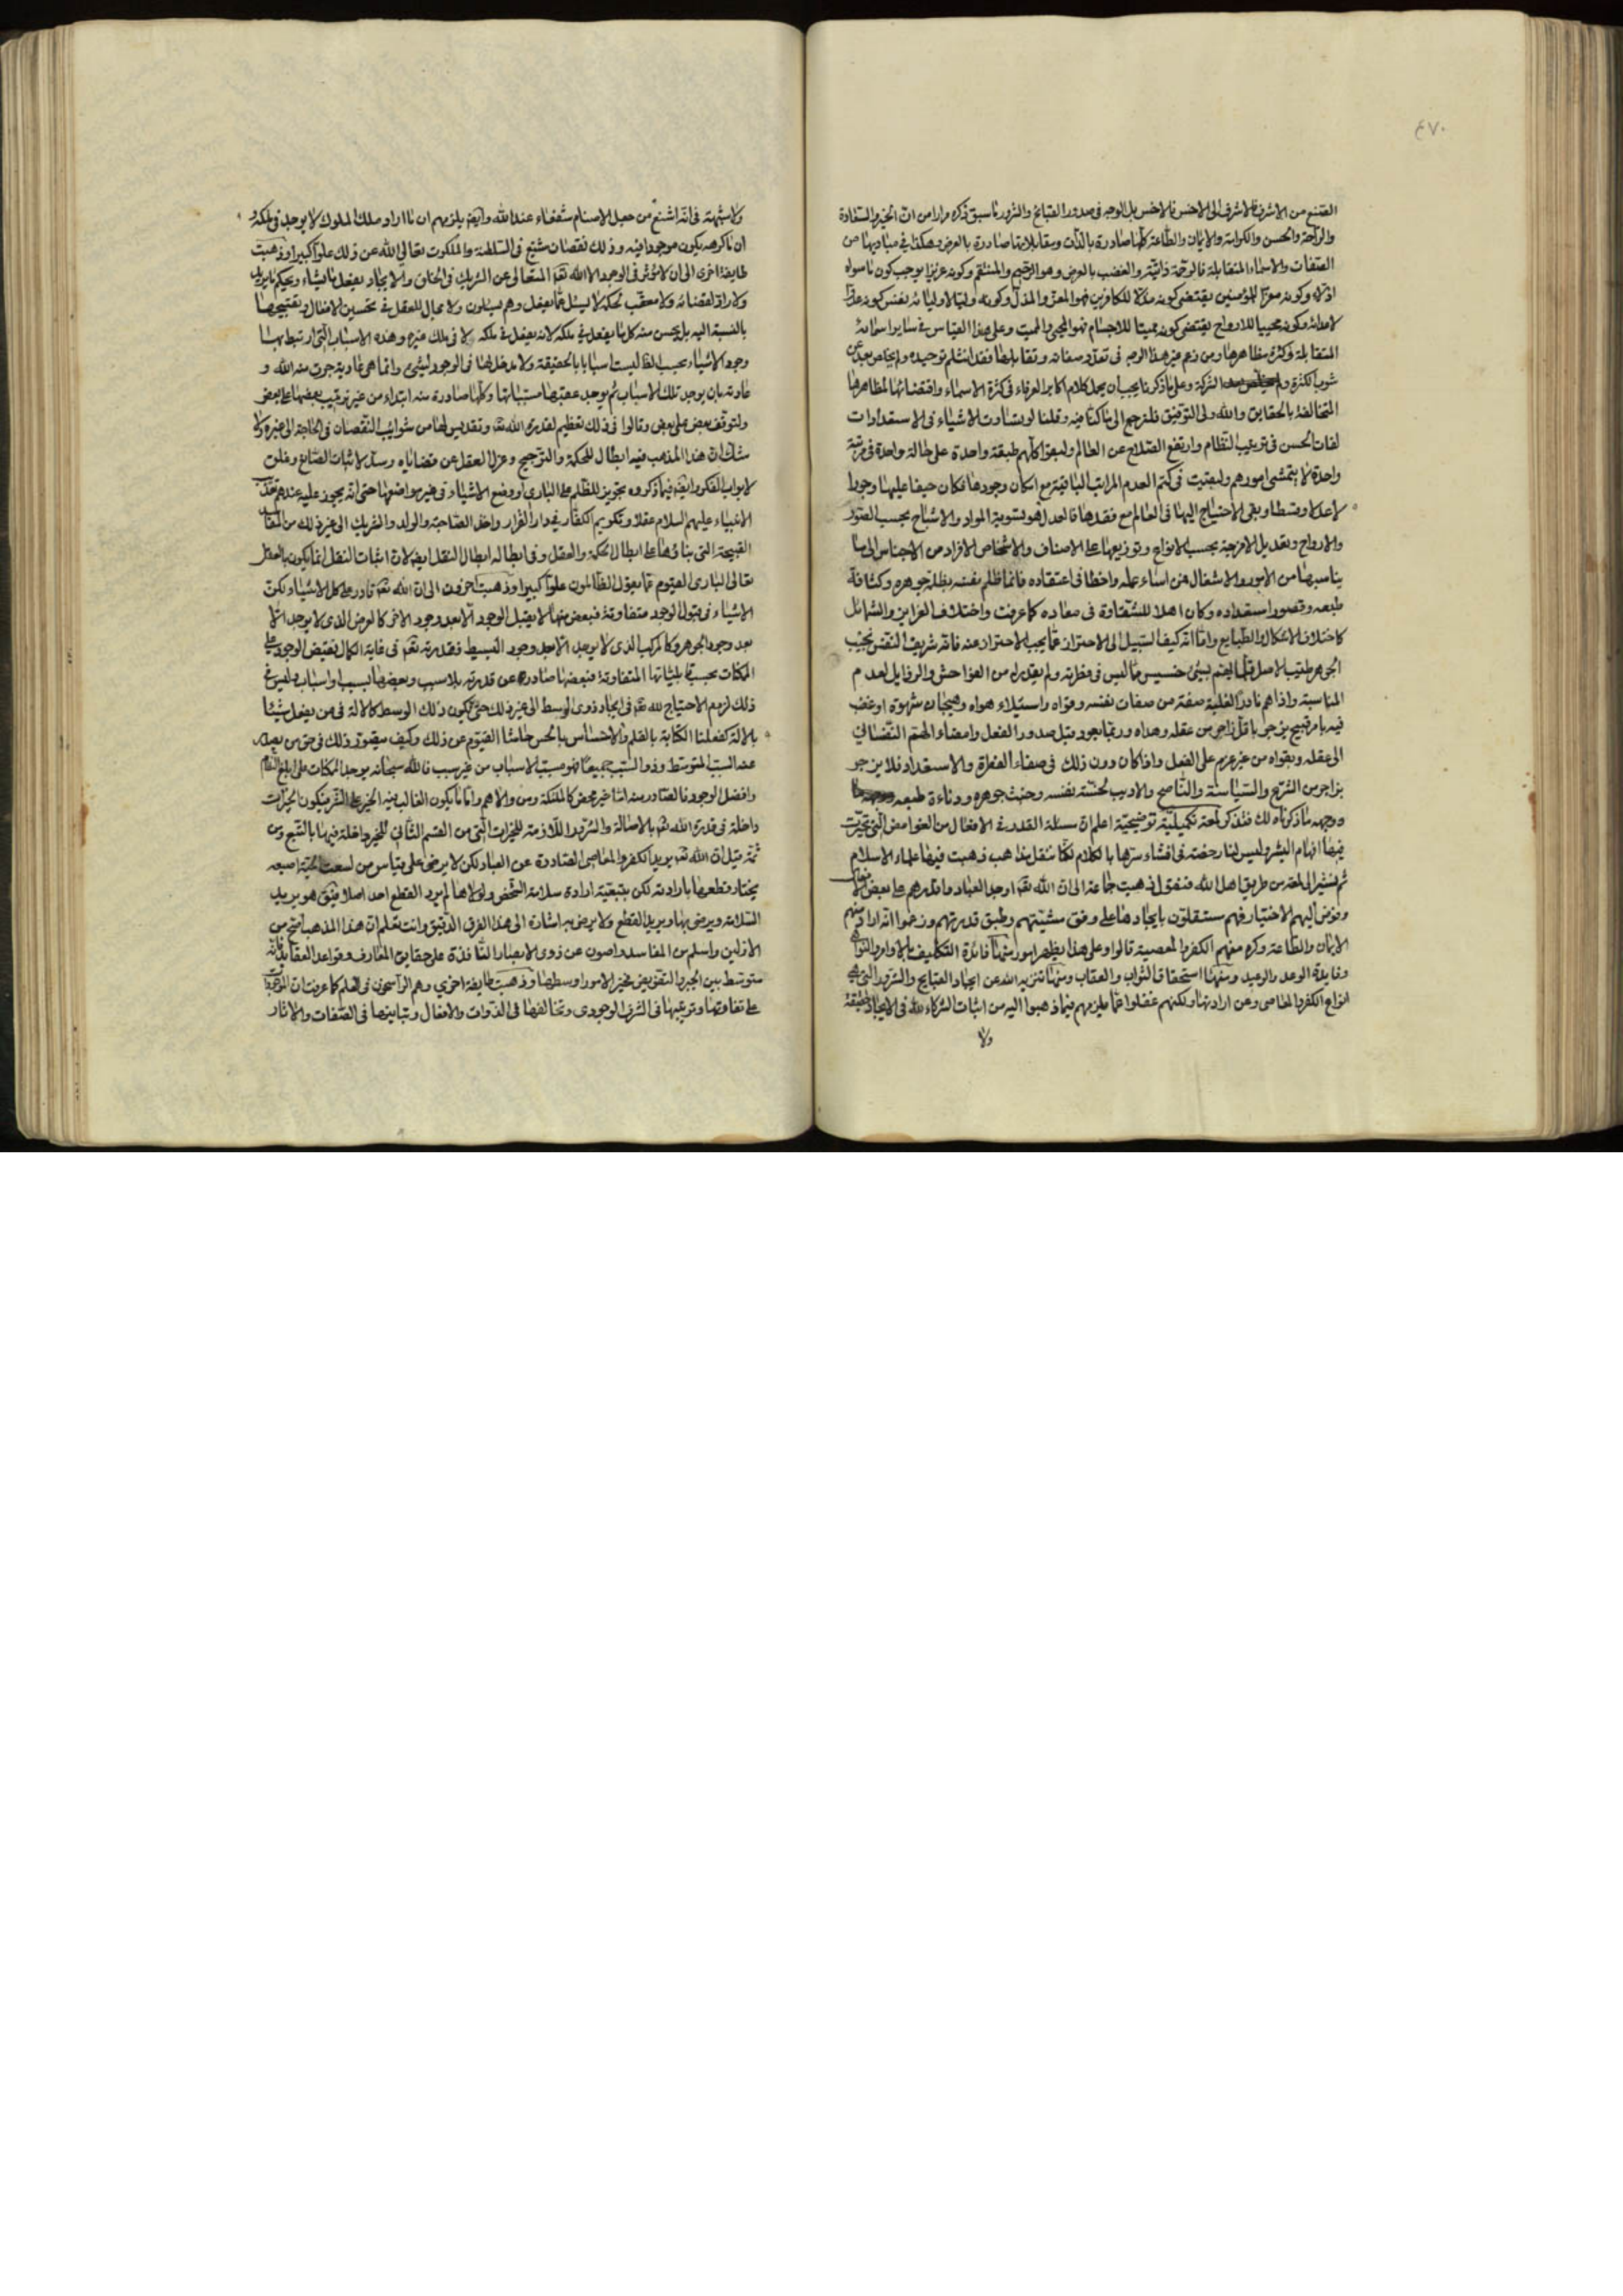 ٤٧٠
الصنع من الاشرف فالاشرف الى الاخس فالاخس بل الوجه فى صدور القبائح والشرور ما سبق ذكره مرارا من ان الخير والسعادة
والراحة والحسن والكرامة والايمان والطاعة كلها صادرة بالذات ومقابلاتها صادرة بالعرض وهكذا فى مباديها من
الصفات والاسماء المتقابلة فالرحمة ذاتية والغضب بالعرض وهو الرحيم والمنتقم وكونه عزيزا يوجب كون ما سواه
اذلاء وكونه معزا للمؤمنين يقتضى كونه مذلا للكافرين فهو المعز والمذل وكونه وليا لاوليائه نفس كونه عدوا
لاعدائه وكونه محييا للارواح يقتضى كونه مميتا للاجسام فهو المحيى والمميت وعلى هذا القياس فى سائر اسمائه
المتقابلة وكثرة مظاهرها ومن زعم غير هذا الوجه فى تعدد صفاته وتقابلها فقد انثلم توحيده ولم يخلص بعد عن
شوب الكثرة والشركة وعلى ما ذكرنا يجب ان يحمل كلام اكابر العرفاء فى كثرة الاسماء واقتضائها لمظاهرها
المتخالفة بالحقايق والله ولى التوفيق فلنرجع الى ما كنا فيه وقلنا لو تساوت الاشياء فى الاستعدادات
لفات الحسن فى ترتيب النظام وارتفع الصلاح عن العالم ولبقوا كلهم طبقة واحدة على حالة واحدة فى مرتبة
واحدة لا يتمشى امورهم ولبقيت فى كتم العدم المراتب الباقية مع امكان وجودها فكان حيفا عليها وجورا
لا عدلا وقسطا وبقى الاحتياج اليها فى العالم مع فقدها فالعدل هو تسوية المواد والاشباح بحسب الصور
والارواح وتعديل الامزجة بحسب الانواع وتوزيعها على الاصناف والاشخاص الافراد من الاجناس الى ما
يناسبها من الامور والاشغال فمن اساء عمله واخطا فى اعتقاده فانما ظلم نفسه بظلمة جوهره وكثافة
طبعه وقصور استعداده وكان اهلا للشقاوة فى معاده كما عرفت واختلاف الغرايز والشمائل
كاختلاف الاشكال والطبايع واما انه كيف السبيل الى الاحتراز عما يجب الاحتراز عنه فانه شريف النفس نجيب
الجوهر طيب الاصل قلما يهتم بشئ خسيس مما ليس فى فطرته ولم يقدر له من الفواحش والرذايل لعدم
المناسبة واذا هم نادرا لغلبة صفة من صفات نفسه وقواه واستيلاء هواه وهيجان شهوة او غضب
فيه بامر قبيح يزجر باقل زاجر من عقله وهداه وربما يعود قبل صدور الفعل وامضاء الهم النفسانى
الى عقله وتقواه من غير عزم على الفعل واذا كان دون ذلك فى صفاء الفطرة والاستعداد فلا ينزجر
بزاجر من الشرع والسياسة والناصح والاديب لخسة نفسه وخبث جوهره ودناءة طبعه
ووجهه ما ذكرناه لك فتذكر لمعة تكميلية توضيحية اعلم ان مسئلة القدر فى الافعال من الغوامض التى تحيرت
فيها افهام البشر وليس لنا رخصة فى افشاء سرها بالكلام لكنا ننقل مذاهب ذهبت فيها علماء الاسلام
ثم نشير الى لمعة من طريق اهل الله فنقول ذهبت جماعة الى ان الله تعالى اوجد العباد واقدرهم على بعض الافعال
وفوض اليهم الاختيار فهم مستقلون بايجادها على وفق مشيتهم وطبق قدرتهم وزعموا انه اراد منهم
الايمان والطاعة وكره منهم الكفر والمعصية قالوا وعلى هذا يظهر امور منها فائدة التكليف بالاوامر والنواهى
وفايدة الوعد والوعيد ومنها استحقاق الثواب والعقاب ومنها تنزيه الله عن ايجاد القبايح والشرور التى هى
انواع الكفر والمعاصى وعن ارادتها ولكنهم غفلوا عما يلزمهم فيما ذهبوا اليه من اثبات الشركاء لله فى الايجاد حقيقة
ولا
ولا شبهة فى انه اشنع من جعل الاصنام شفعاء عند الله وايضا يلزمهم ان ما اراد ملك الملوك لا يوجد فى ملكه و
ان ما كرهه يكون موجودا فيه وذلك نقصان شنيع فى السلطنة والملكوت تعالى الله عن ذلك علوا كبيرا وذهبت
طايفة اخرى الى ان لا مؤثر فى الوجود الا الله تعالى المتعالى عن الشريك فى الخلق والايجاد يفعل ما يشاء ويحكم ما يريد
ولا راد لقضائه ولا معقب لحكمه لا يسئل عما يفعل وهم يسئلون ولا مجال للعقل فى تحسين الافعال وتقبيحها
بالنسبة اليه بل يحسن منه كل ما يفعل فى ملكه لانه يفعل فى ملكه لا فى ملك غيره وهذه الاسباب التى ارتبط بها
وجود الاشياء بحسب الظاهر ليست اسبابا بالحقيقة ولا مدخل لها فى الوجود لشئ وانما هى عادية جرت سنة الله و
عادته بان يوجد تلك الاسباب ثم يوجد عقيبها مسبباتها وكلها صادرة منه ابتداء من غير ترتيب بعضها على بعض
ولتوقف بعض على بعض وقالوا فى ذلك تعظيم لقدرة الله تعالى وتقديس لها من شوائب النقصان فى الحاجة الى غيره ولا
شك ان هذا المذهب فيه ابطال للحكمة والترجيح وعزل العقل عن قضاياه وسد لاثبات الصانع وغلق
لابواب الفكر وايضا فيما ذكروه تجويز للظلم على البارى ووضع الاشياء فى غير مواضعها حتى انه يجوز عليه عندهم تعذيب
الانبياء عليهم السلام عقلا وتكريم الكفار فى دار القرار واخذ الصاحبة والولد والشريك الى غير ذلك من المفاسد
القبيحة التى بناؤها على ابطال الحكمة والعقل وفى ابطاله ابطال النقل ايضا لان اثبات النقل انما يكون بالعقل
تعالى البارى القيوم عما يقول الظالمون علوا كبيرا وذهبت اخرون الى ان الله تعالى قادر على كل الاشياء لكن
الاشياء فى قبول الوجود متفاوتة فبعض منها لا يقبل الوجود الا بعد وجود الاخر كالعرض الذى لا يوجد الا
بعد وجود الجوهر وكالمركب الذى لا يوجد الا بعد وجود البسيط فقدرته تعالى فى غاية الكمال يفيض الوجود على
الممكنات بحسب قابلياتها المتفاوتة فبعضها صادرة عن قدرته بلا سبب وبعضها بسبب او اسباب وليس فى
ذلك لزوم الاحتياج لله تعالى فى ايجاد ذوى الوسط الى غير ذلك حتى يكون ذلك الوسط كالالة فى من يفعل شيئا
بالالة كفعلنا الكتابة بالقلم والاحساس بالحس حاشا القيوم عن ذلك وكيف يتصور ذلك فى حق من يصدر
عنه السبب المتوسط وذو السبب جميعا فهو مسبب الاسباب من غير سبب فالله سبحانه يوجد الممكنات على ابلغ النظام
وافضل الوجود فالصادر منه اما خير محض كالملئكة ومن والاهم واما ما يكون الغالب فيه الخير على الشر فيكون الخيرات
داخلة فى قدرة الله تعالى بالاصالة والشرور اللازمة للخيرات التى من القسم الثانى للخير داخلة فيها بالتبع ومن
ثمة قيل ان الله تعالى يريد الكفر والمعاصى الصادرة عن العباد لكن لا يرضى على قياس من لسعت الحية اصبعه
يختار قطعها بارادته لكن بتبعية ارادة سلامة الشخص ولولاها لم يرد القطع احد اصلا فيقال هو يريد
السلامة ويرضى بها ويريد القطع ولا يرضى به اشارة الى هذا الفرق الدقيق وانت تعلم ان هذا المذهب اصح من
الاولين واسلم من المفاسد واصون عن ذوى الابصار النافذة على حقايق المعارف وقواعد العقايد فانه
متوسط بين الجبر والتفويض وخير الامور اوسطها وذهبت طايفة اخرى وهم الراسخون فى العلم كما عرفت ان الموجودات
على تفاوتها وترتيبها فى الشرف الوجودى وتخالفها فى الذوات والافعال وتباينها فى الصفات والاثار